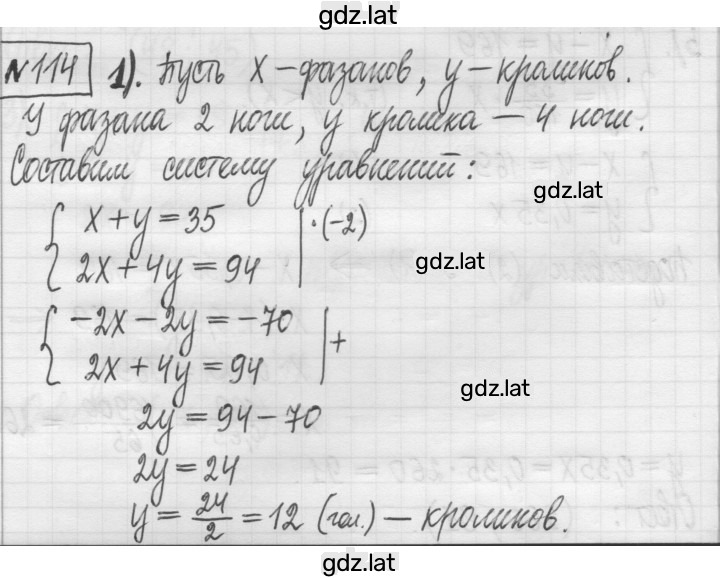 gdz.lat
№114 1). Пусть x – фазанов, y – кроликов.
У фазана 2 ноги, у кролика – 4 ноги.
Составим систему уравнений:
gdz.lat
{ x + y = 35 | · (-2)
2x + 4y = 94
gdz.lat
{ -2x - 2y = -70 | +
2x + 4y = 94
gdz.lat
2y = 94 - 70
2y = 24
y = 24/2 = 12 (гол.) – кроликов.
gdz.lat